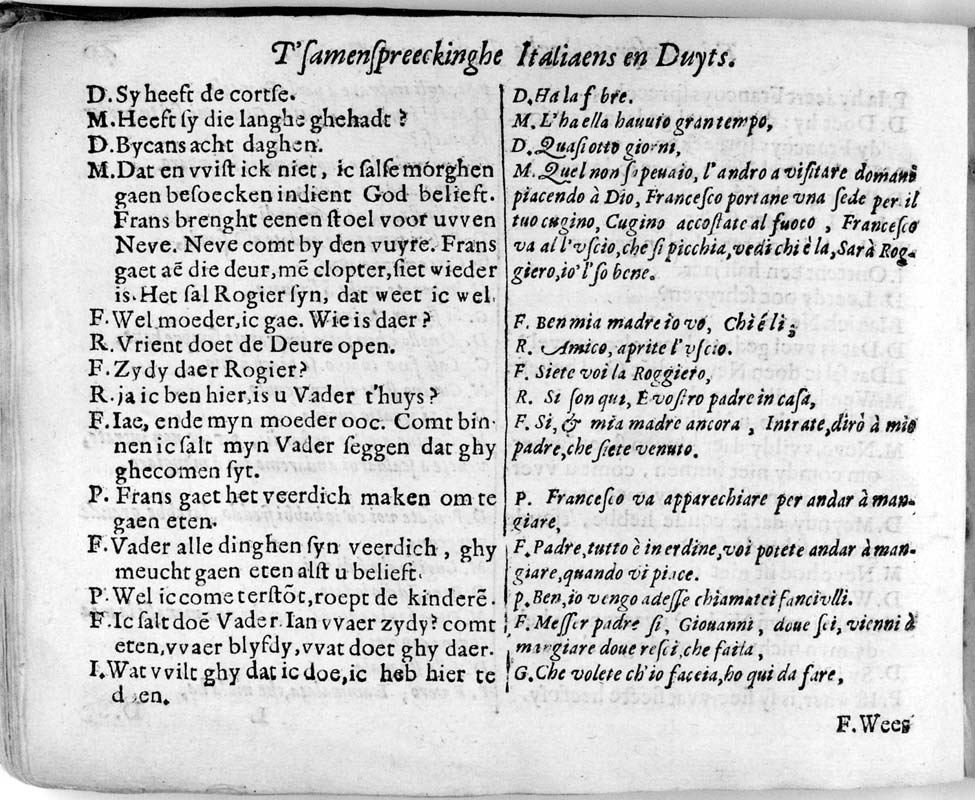 T'samenspreeckinghe Italiaens en Duyts.
D. Sy heeft de cortse.
M. Heeft sy die langhe ghehadt?
D. Bycans acht daghen.
M. Dat en vvist ick niet, ic salse morghen
gaen besoecken indient God belieft.
Frans brenght eenen stoel voor uvven
Neve. Neve comt by den vuyre. Frans
gaet aẽ die deur, mẽ clopter, siet wieder
is. Het sal Rogier syn, dat weet ic wel.
F. Wel moeder, ic gae. Wie is daer?
R. Vrient doet de Deure open.
F. Zydy daer Rogier?
R. ja ic ben hier, is u Vader t'huys?
F. Iae, ende myn moeder ooc. Comt bin-
nen ic salt myn Vader seggen dat ghy
ghecomen syt.
P. Frans gaet het veerdich maken om te
gaen eten.
F. Vader alle dinghen syn veerdich, ghy
meucht gaen eten alst u belieft.
P. Wel ic come terstõt, roept de kinderẽ.
F. Ic salt doẽ Vader. Ian vvaer zydy? comt
eten, vvaer blyfdy, vvat doet ghy daer.
I. Wat vvilt ghy dat ic doe, ic heb hier te
doen.
D. Ha la f bre.
M. L'ha ella hauuto gran tempo,
D. Quasi otto giorni,
M. Quel non sapeuaio, l'andro a visitare domane
piacendo à Dio, Francesco portane vna sede per il
tuo cugino, Cugino accostate al fuoco, Francesco
va all'vscio, che si picchia, vedi chi è la, Sarà Rog-
giero, io'l'so bene.
F. Ben mia madre io vò, Chi é li;
R. Amico, aprite l'vscio.
F. Siete voi la Roggiero,
R. Si son qui, E vostro padre in casa,
F. Si, & mia madre ancora, Intrate, dirò à mio
padre, che siete venuto.
P. Francesco va apparechiare per andar à man-
giare,
F. Padre, tutto è in erdine, voi potete andar à man-
giare, quando vi piace.
p. Ben, io vengo adesse chiamate i fanciulli.
F. Messer padre si, Giouanni, doue sei, vienni à
mangiare doue resci, che faita,
G. Che volete ch'io faceia, ho qui da fare,
F. Wees